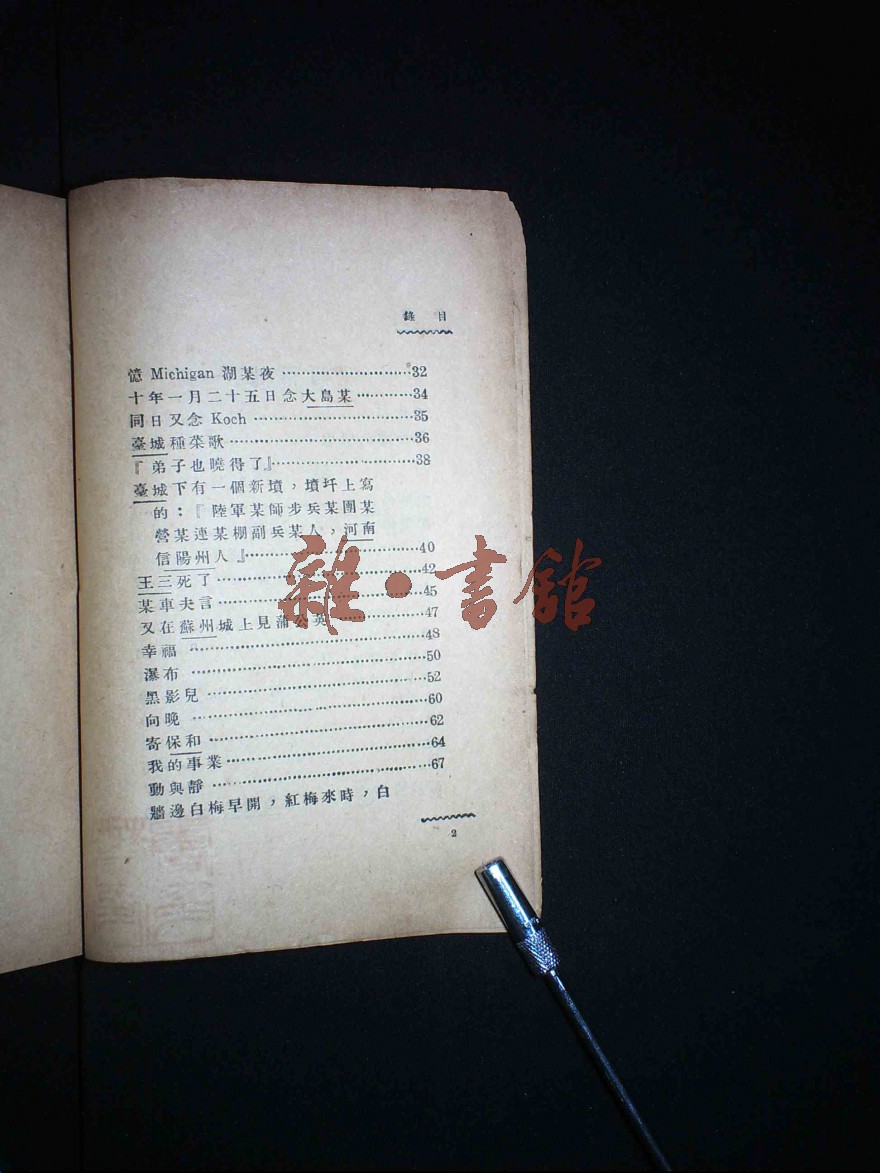 錄 目
憶 Michigan 湖某夜 ··········32
十年一月二十五日念大島某··········34
同日又念 Koch··········35
臺城種菜歌··········36
『弟子也曉得了』··········38
臺城下有一個新墳，墳圩上寫
的：『陸軍某師步兵某團某
營某連某棚副兵某人，河南
信陽州人』··········40
王三死了··········42
某車夫言··········45
又在蘇州城上見蒲公英··········47
幸福··········48
瀑布··········50
黑影兒··········52
向晚··········60
寄保和··········62
我的事業··········64
動與靜··········67
牆邊白梅早開，紅梅來時，白
2
雜·書館